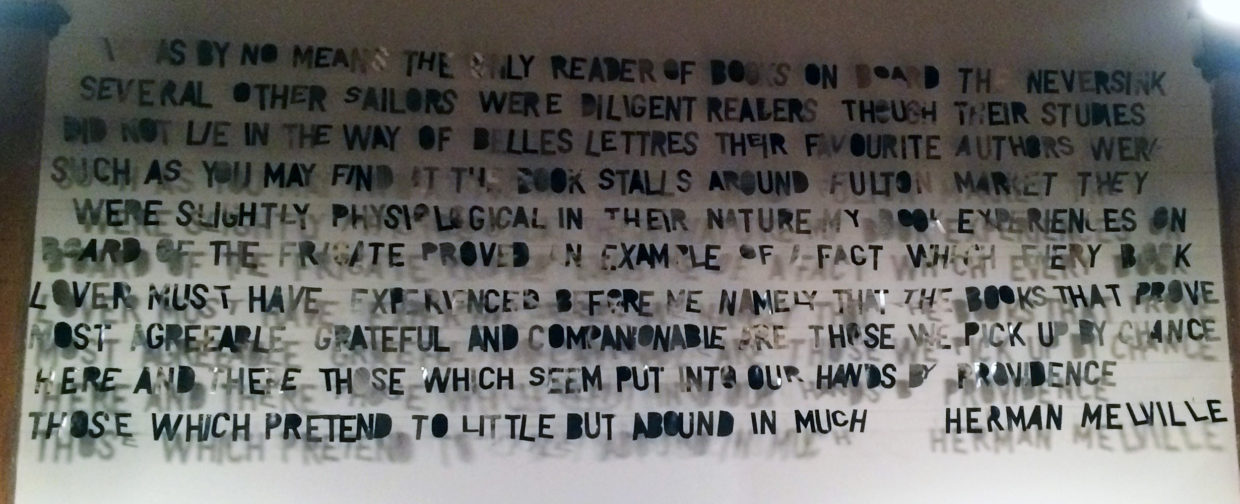 I WAS BY NO MEANS THE ONLY READER OF BOOKS ON BOARD THE NEVERSINK
SEVERAL OTHER SAILORS WERE DILIGENT READERS THOUGH THEIR STUDIES
DID NOT LIE IN THE WAY OF BELLES LETTRES THEIR FAVOURITE AUTHORS WERE
SUCH AS YOU MAY FIND AT THE BOOK STALLS AROUND FULTON MARKET THEY
WERE SLIGHTLY PHYSIOLOGICAL IN THEIR NATURE MY BOOK EXPERIENCES ON
BOARD OF THE FRIGATE PROVED AN EXAMPLE OF A FACT WHICH EVERY BOOK
LOVER MUST HAVE EXPERIENCED BEFORE ME NAMELY THAT THE BOOKS THAT PROVE
MOST AGREEABLE GRATEFUL AND COMPANIONABLE ARE THOSE WE PICK UP BY CHANCE
HERE AND THERE THOSE WHICH SEEM PUT INTO OUR HANDS BY PROVIDENCE
THOSE WHICH PRETEND TO LITTLE BUT ABOUND IN MUCH HERMAN MELVILLE